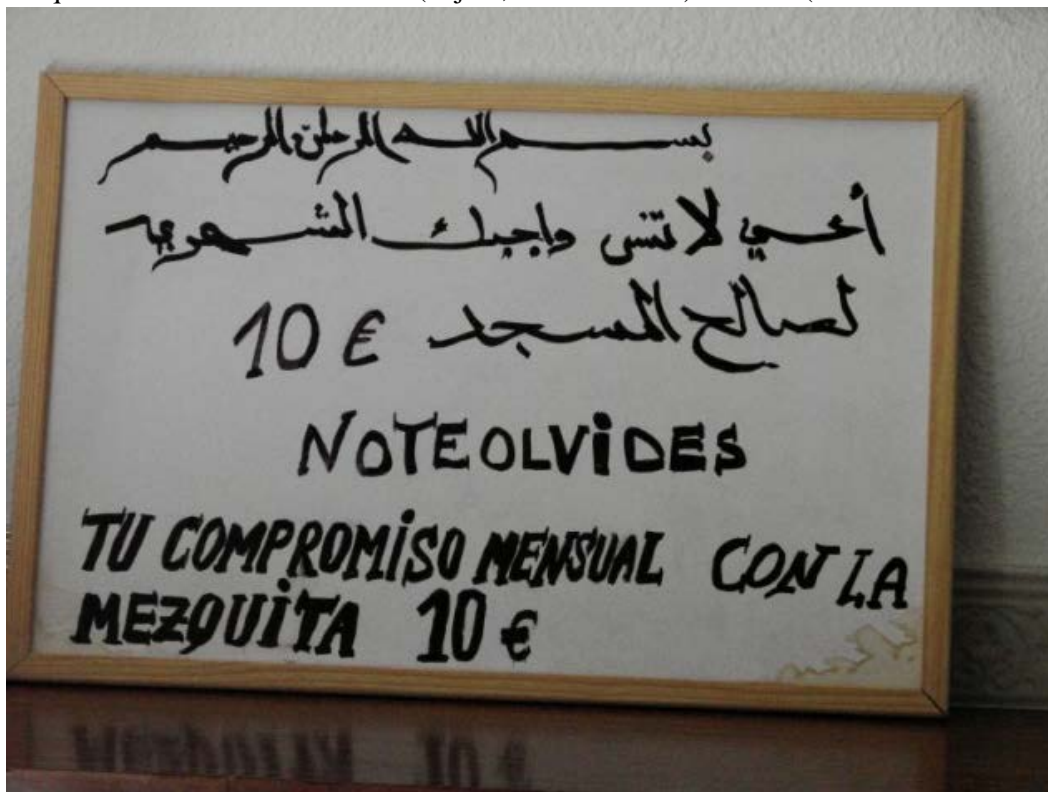 بسم الله الرحمن الرحيم
أخي لا تنس واجبك الشهري
لصالح المسجد 10 €
NO TE OLVIDES
TU COMPROMISO MENSUAL CON LA
MEZQUITA 10 €